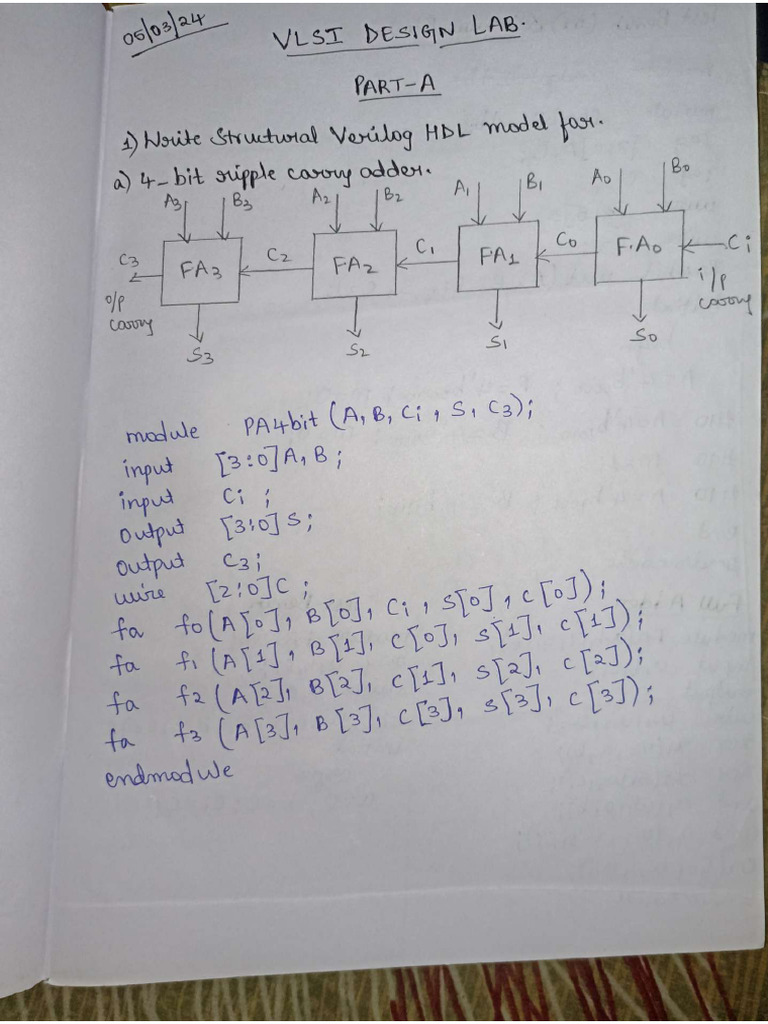 05/03/24
VLSI DESIGN LAB.
PART-A
1) Write Structural Verilog HDL model for.
a) 4-bit ripple carry adder.
A3 B3 A2 B2 A1 B1 A0 B0
C3 FA3 C2 FA2 C1 FA1 C0 F.A0 Ci
o/p carry
i/p carry
S3 S2 S1 S0
module PA4bit (A, B, Ci, S, C3);
input [3:0]A, B;
input Ci;
output [3:0]S;
output C3;
wire [2:0]C;
fa f0(A[0], B[0], Ci, S[0], C[0]);
fa f1(A[1], B[1], C[0], S[1], C[1]);
fa f2(A[2], B[2], C[1], S[2], C[2]);
fa f3(A[3], B[3], C[3], S[3], C[3]);
endmodule